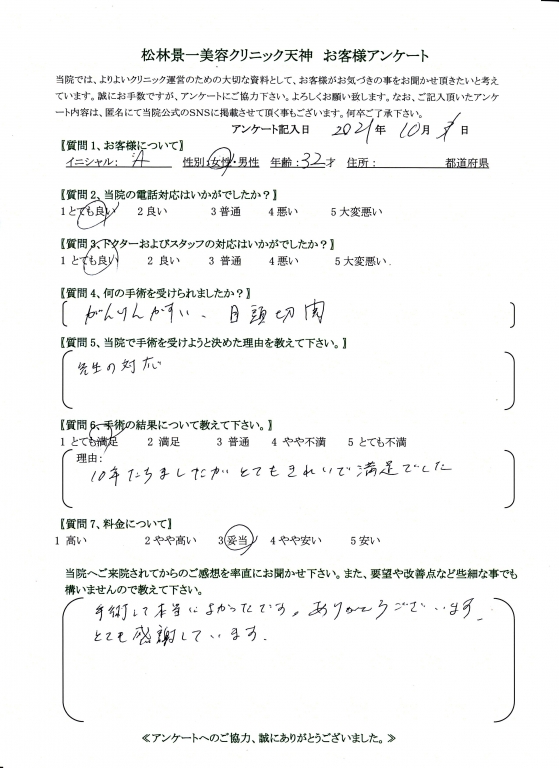 松林景一美容クリニック天神 お客様アンケート
当院では、よりよいクリニック運営のための大切な資料として、お客様がお気づきの事をお聞かせ頂きたいと考え
ています。誠にお手数ですが、アンケートにご協力下さい。よろしくお願い致します。なお、ご記入頂いたアンケ
ート内容は、匿名にて当院公式のSNSに掲載させて頂く事もございます。何卒ご了承下さい。
アンケート記入日 2021年 10月 日
〖質問1、お客様について〗
イニシャル: A 性別:女性・男性 年齢:32才 住所: 都道府県
〖質問2、当院の電話対応はいかがでしたか?〗
1とても良い 2良い 3普通 4悪い 5大変悪い
〖質問3、ドクターおよびスタッフの対応はいかがでしたか?〗
1とても良い 2 良い 3 普通 4悪い 5大変悪い.
〖質問4、何の手術を受けられましたか?〗
がんけんかすい、目頭切開
〖質問5、当院で手術を受けようと決めた理由を教えて下さい。〗
先生の対応
〖質問6、手術の結果について教えて下さい。〗
1とても満足 2 満足 3 普通 4 やや不満 5 とても不満
理由:
10年たちましたがとてもきれいで満足でした
〖質問7、料金について〗
1 高い 2やや高い 3妥当 4やや安い 5安い
当院へご来院されてからのご感想を率直にお聞かせ下さい。また、要望や改善点など些細な事でも
構いませんので教えて下さい。
手術して本当によかったです。ありがとうございます。
とても感謝しています.
≪アンケートへのご協力、誠にありがとうございました。≫